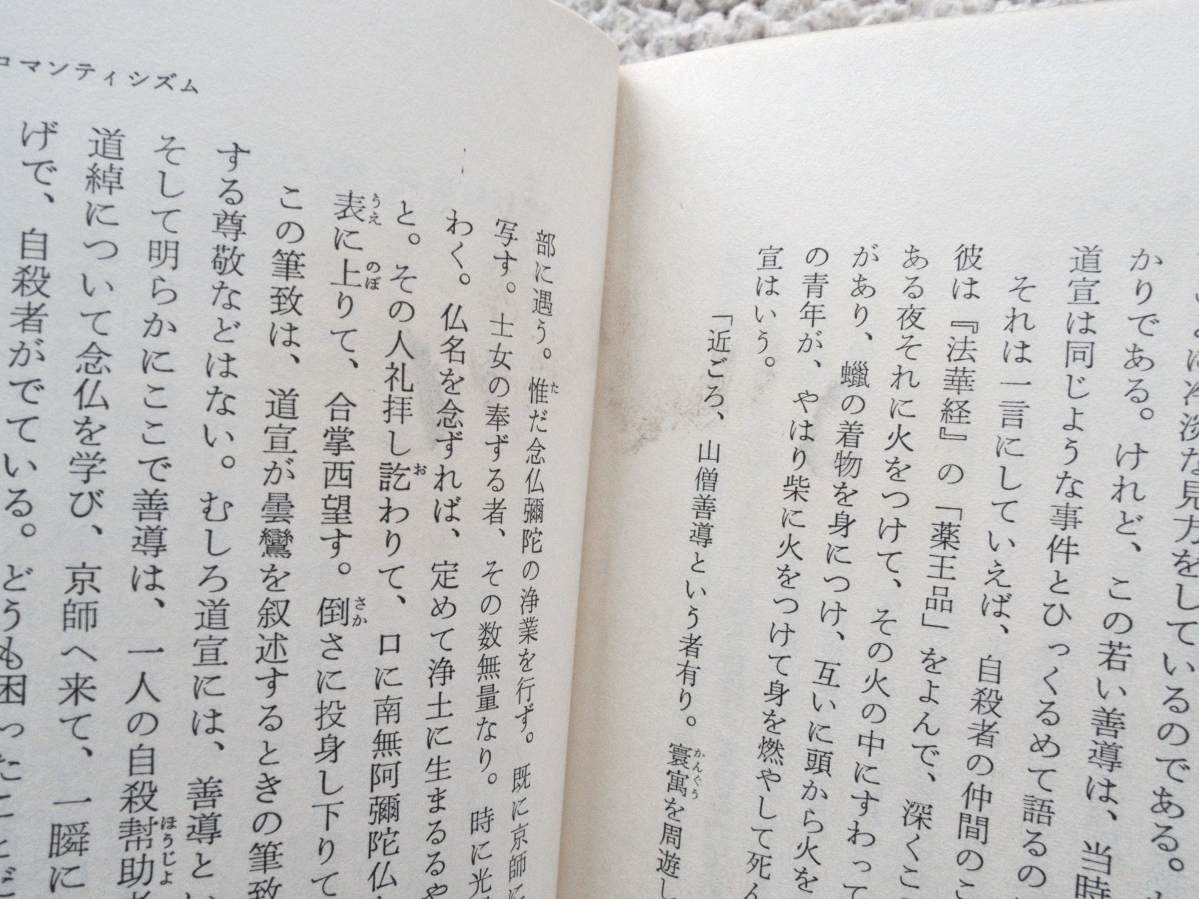 冷淡な見方をしているのである。
かりである。けれど、この若い善導は、当時
道宣は同じような事件とひっくるめて語るの
それは一言にしていえば、自殺者の仲間のこ
彼は『法華経』の「薬王品」をよんで、深くこ
ある夜それに火をつけて、その火の中にすわって
があり、蠟の着物を身につけ、互いに頭から火を
の青年が、やはり柴に火をつけて身を燃やして死ん
宣はいう。
「近ごろ、山僧善導という者有り。寰寓を周遊し
かんぐう
部に遇う。惟だ念仏彌陀の浄業を行ず。既に京師に
た
写す。士女の奉ずる者、その数無量なり。時に光
わく。仏名を念ずれば、定めて浄土に生まるるや
と。その人礼拝し訖わりて、口に南無阿彌陀仏
お
表に上りて、合掌西望す。倒さに投身し下りて
うえ
のぼ
さか
この筆致は、道宣が曇鸞を叙述するときの筆致
する尊敬などはない。むしろ道宣には、善導と
そして明らかにここで善導は、一人の自殺幇助
ほうじよ
道綽について念仏を学び、京師へ来て、一瞬に
げで、自殺者がでている。どうも困ったことだ
ロマンティシズム